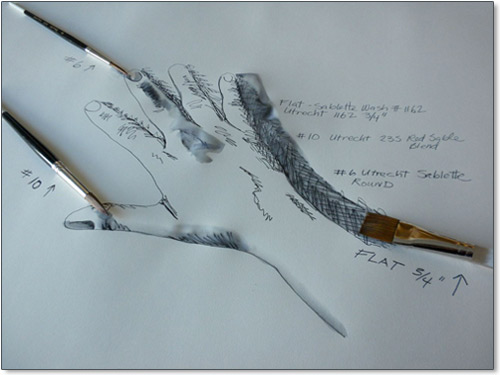 #6 ↑
FLAT - Sablette Wash #1162
Utrecht 1162 3/4"
#10 Utrecht 235 Red Sable
Blend
#6 Utrecht Sablette
Round
#10 ↑
FLAT 3/4" ↑